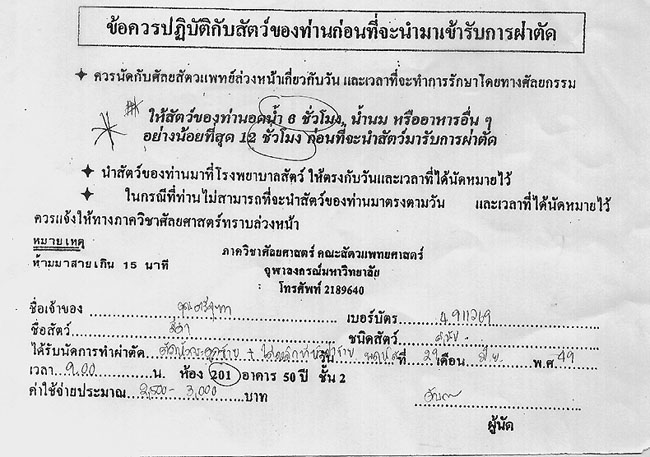 ข้อควรปฏิบัติกับสัตว์ของท่านก่อนที่จะนำมาเข้ารับการผ่าตัด
ควรนัดกับศัลยสัตวแพทย์ล่วงหน้าเกี่ยวกับวัน และเวลาที่จะทำการรักษาโดยทางศัลยกรรม
ให้สัตว์ของท่านอดน้ำ 6 ชั่วโมง, น้ำนม หรืออาหารอื่น ๆ
อย่างน้อยที่สุด 12 ชั่วโมง ก่อนที่จะนำสัตว์มารับการผ่าตัด
นำสัตว์ของท่านมาที่โรงพยาบาลสัตว์ ให้ตรงกับวันและเวลาที่ได้นัดหมายไว้
ในกรณีที่ท่านไม่สามารถที่จะนำสัตว์ของท่านมาตรงตามวัน และเวลาที่ได้นัดหมายไว้
ควรแจ้งให้ทางภาควิชาศัลยศาสตร์ทราบล่วงหน้า
หมายเหตุ
ห้ามมาสายเกิน 15 นาที
ภาควิชาศัลยศาสตร์ คณะสัตวแพทยศาสตร์
จุฬาลงกรณ์มหาวิทยาลัย
โทรศัพท์ 2189640
ชื่อเจ้าของ เบอร์บัตร 4911269
ชื่อสัตว์ ชนิดสัตว์
ได้รับนัดการทำผ่าตัด วัน ที่ 29 เดือน พ.ศ. 49
เวลา 9.00 น. ห้อง 201 อาคาร 50 ปี ชั้น 2
ค่าใช้จ่ายประมาณ 2,500 - 3,000 บาท
ผู้นัด